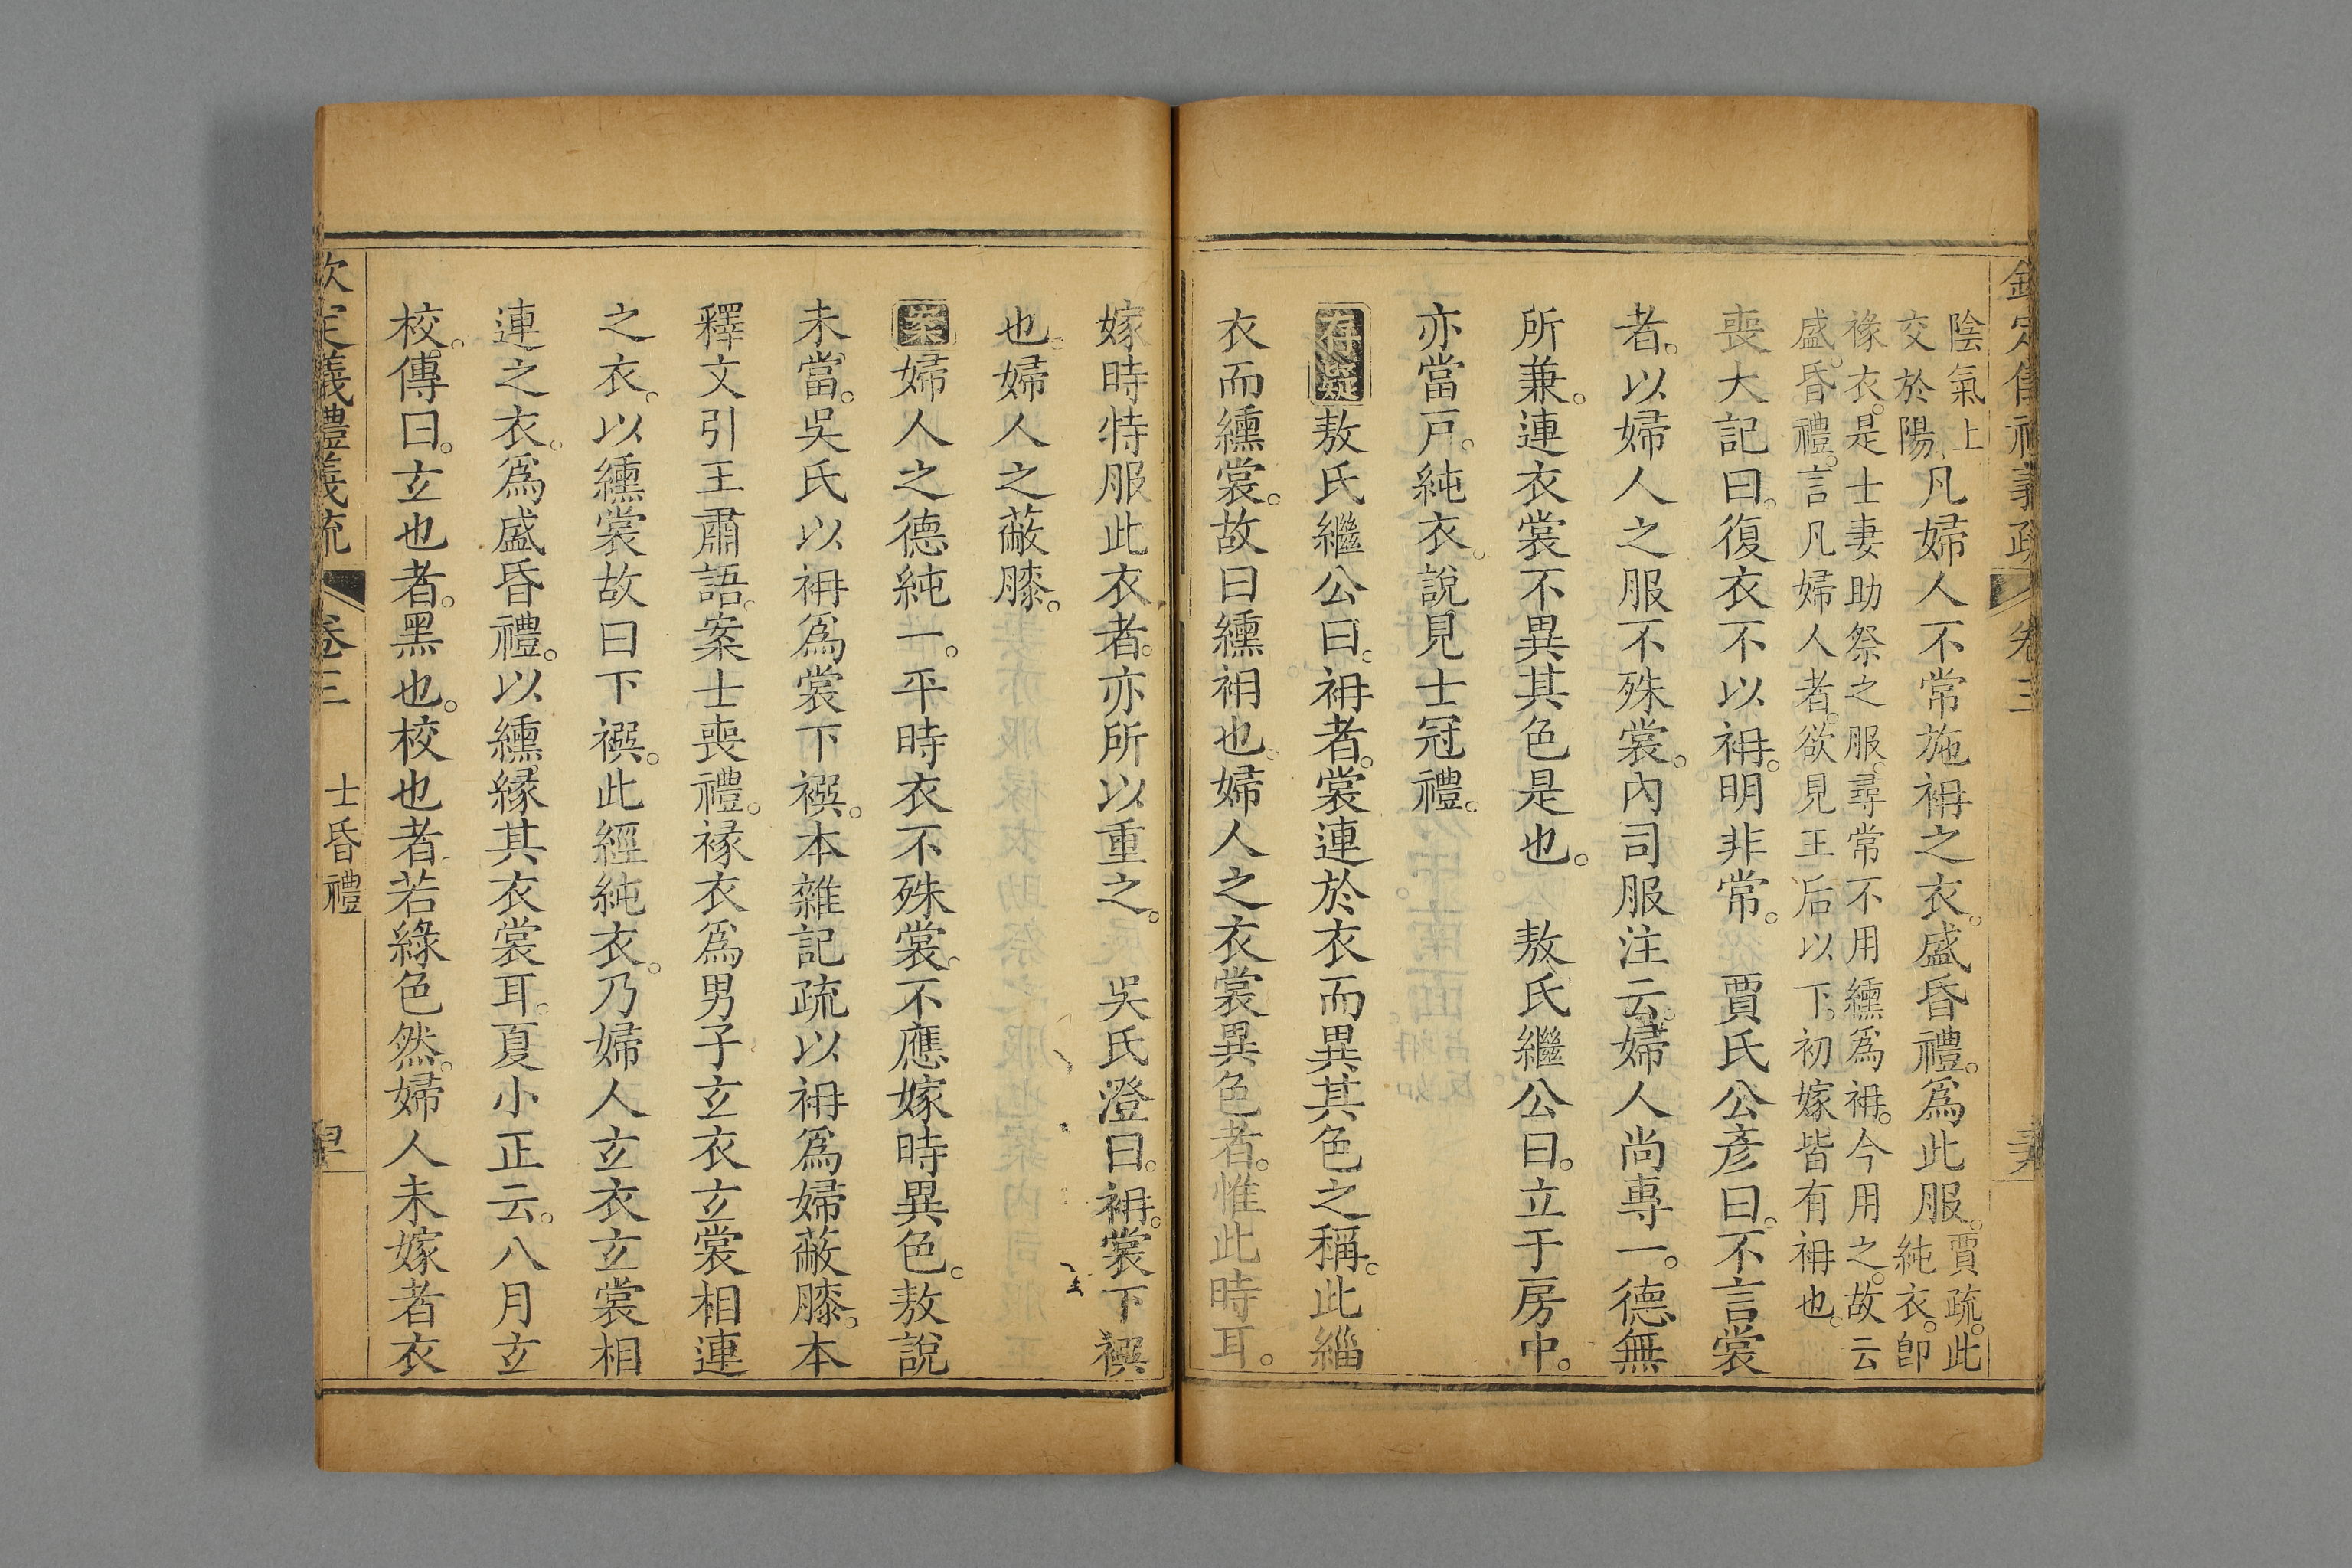 欽定儀禮義疏 卷三
陰氣上
交於陽。凡婦人不常施袡之衣。盛昏禮。爲此服。賈疏。此
純衣。卽
褖衣。是士妻助祭之服。尋常不用纁爲袡。今用之。故云
盛昏禮。言凡婦人者。欲見王后以下。初嫁皆有袡也。
喪大記曰。復衣不以袡。明非常。 賈氏公彥曰。不言裳
者。以婦人之服不殊裳。內司服注云。婦人尚專一。德無
所兼。連衣裳不異其色是也。 敖氏繼公曰。立于房中。
亦當戸。純衣。說見士冠禮。
存疑敖氏繼公曰。袡者。裳連於衣而異其色之稱。此緇
衣而纁裳。故曰纁袡也。婦人之衣裳異色者。惟此時耳。
嫁時特服此衣者。亦所以重之。 吳氏澄曰。袡。裳下襈
也。婦人之蔽膝。
案婦人之德純一。平時衣不殊裳。不應嫁時異色。敖說
未當。吳氏以袡爲裳下襈。本雜記疏以袡爲婦蔽膝。本
釋文引王肅語。案士喪禮。褖衣爲男子玄衣玄裳相連
之衣。以纁裳故曰下襈。此經純衣。乃婦人玄衣玄裳相
連之衣。爲盛昏禮。以纁緣其衣裳耳。夏小正云。八月玄
校。傳曰。玄也者。黑也。校也者若綠色然。婦人未嫁者衣
欽定儀禮義疏 卷三 士昏禮